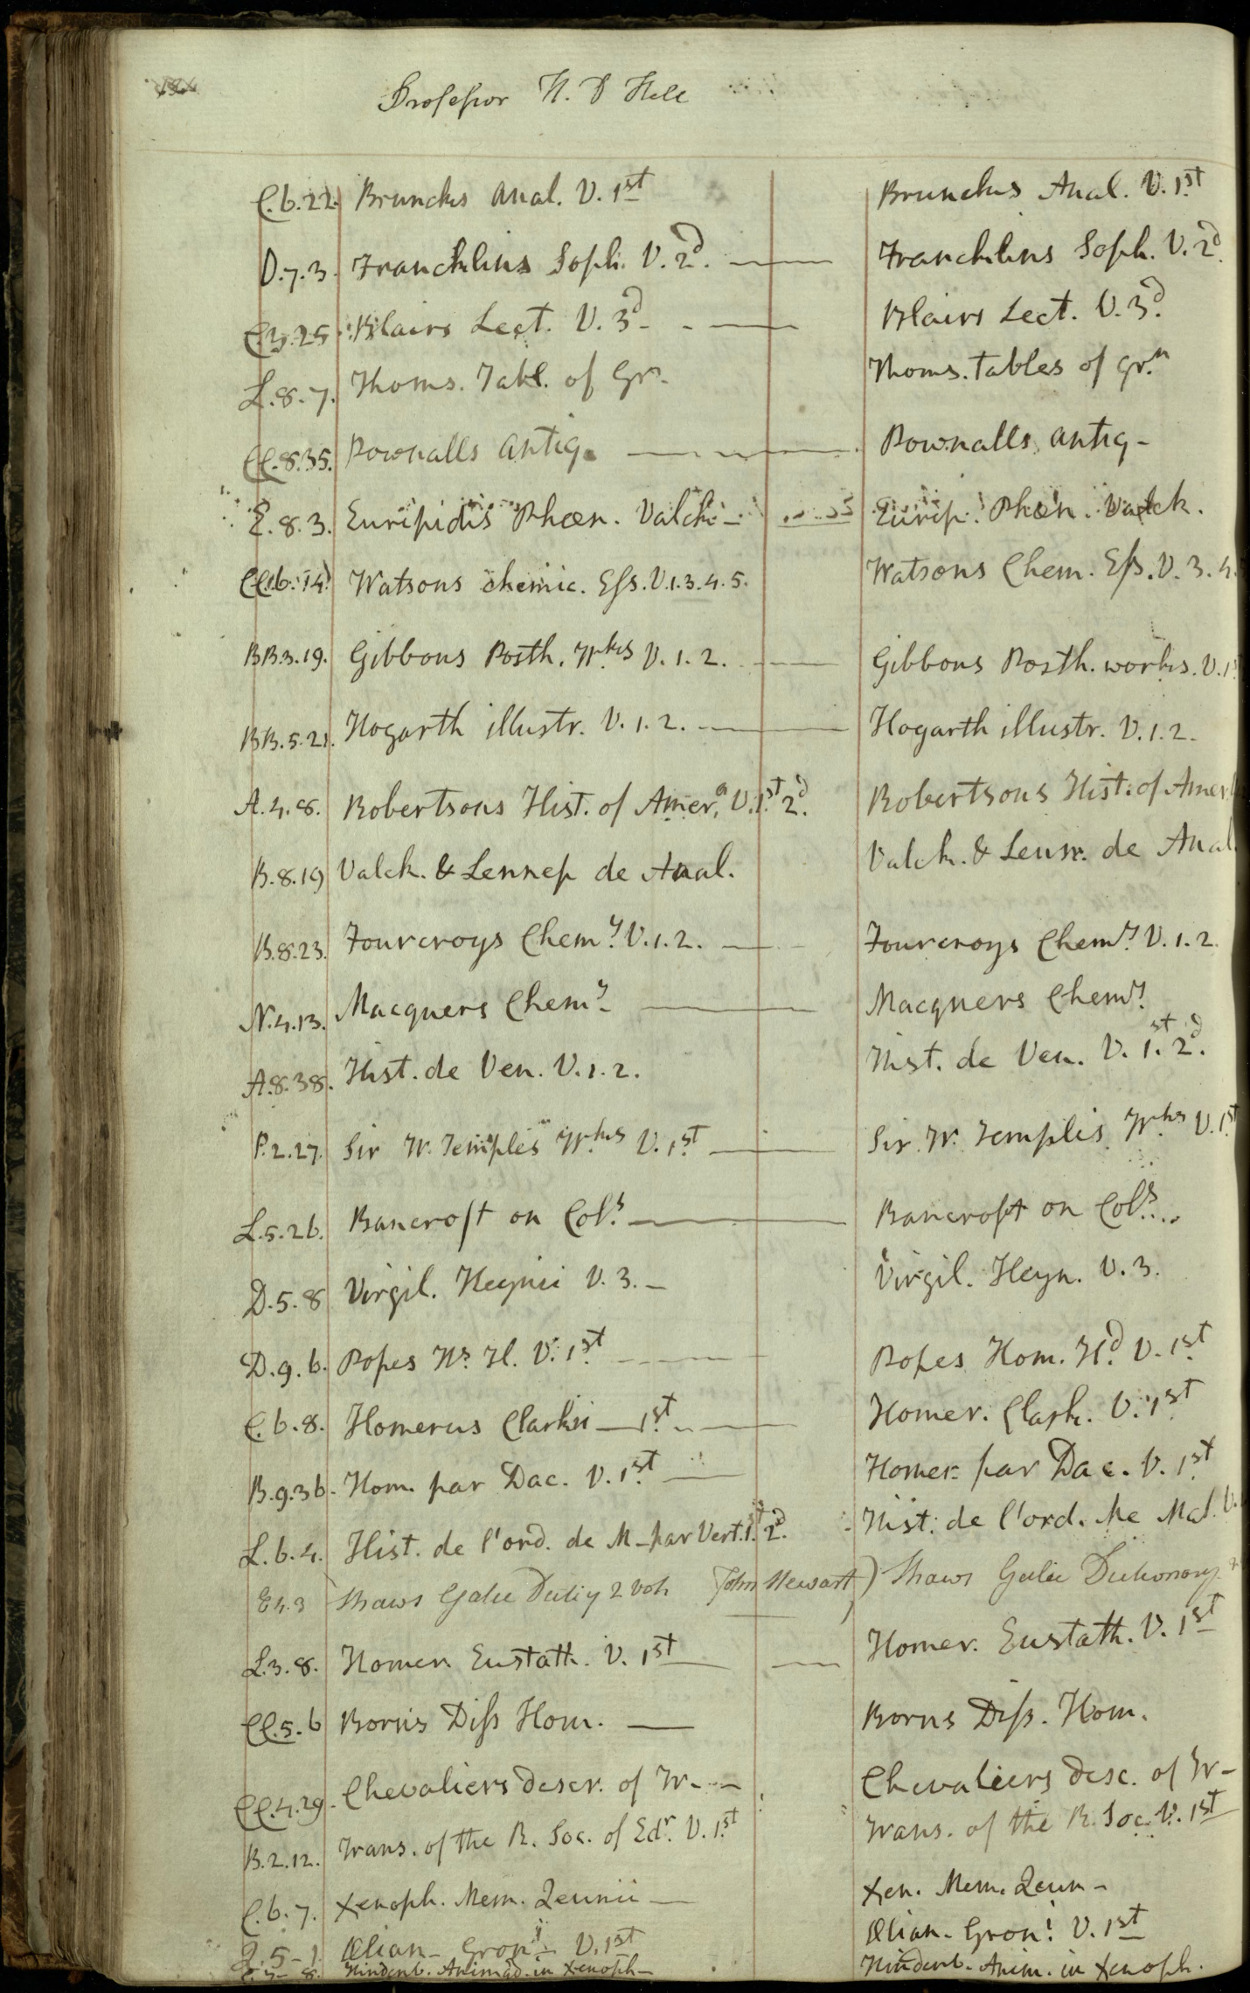 Professor H. D Hill
C.6.22. Bruncks Anal. V. 1st Bruncks Anal. V. 1st
D.7.3. Francklins Soph. V. 2d. Francklins Soph. V. 2d.
C.3.25. Blairs Lect. V. 3d Blairs Lect. V. 3d.
L.8.7. Thoms. Tabl. of Grn. Thoms. tables of Grn
CC.8.35. Pownalls Antiq. Pownalls Antiq-
E.8.3. Euripidis Phœn. Valck- Eurip. Phœn. Valck.
CC.6.14. Watsons chemic. Ess. V. 1.3.4.5. Watsons Chem. Ess. V. 3.4.
BB.3.19. Gibbons Posth. Wrks V. 1. 2. Gibbons Posth. works. V. 1
BB.5.21. Hogarth illustr. V. 1. 2. Hogarth illustr. V. 1. 2.
A.4.8. Robertsons Hist. of Amera. V. 1st. 2d. Robertsons Hist. of Amer
B.8.19 Valck. & Lennep de Anal. Valck. & Lenn. de Anal
B.8.23. Fourcroys Chemy. V. 1. 2. Fourcroys Chemy. V. 1. 2
N.4.13. Macquers Chemy Macquers Chemy.
A.8.38. Hist. de Ven. V. 1. 2. Hist. de Ven. V. 1st. 2d.
P.2.27. Sir W. Temples Wrks V. 1st Sir W. Temples Wrks V. 1st
L.5.26. Bancroft on Cols. Bancroft on Cols.
D.5.8 Virgil. Heynii V. 3. Virgil. Heyn. V. 3.
D.9.6. Popes Hs. Il. V. 1st Popes Hom. Ild. V. 1st
C.6.8. Homerus Clarkii 1st Homer. Clark. V. 1st
B.9.36. Hom. par Dac. V. 1st Homer. par Dac. V. 1st
L.6.4. Hist. de l'ord. de M- par Vert. 1st 2d. Hist. de l'ord. de Mal. V.
E4.3 Shaws Galic Dictiy 2 vols John Stewart) Shaws Galic Dictionary
L.3.8. Homer. Eustath. V. 1st Homer. Eustath. V. 1st
CC.5.6 Borns Diss Hom. Borns Diss. Hom.
CC.4.29. Chevaliers descr. of Tr- Chevaliers desc. of Tr-
B.2.12. Trans. of the R. Soc. of Edr. V. 1st Trans. of the R. Soc. V. 1st
C.6.7. Xenoph. Mem. Zeunii Xen. Mem. Zeun-
5-1 Ælian- Gronii V. 1st Ælian- Gron. V. 1st
Hindenb. Animad. in Xenoph- Hindenb. Anim. in Xenoph.